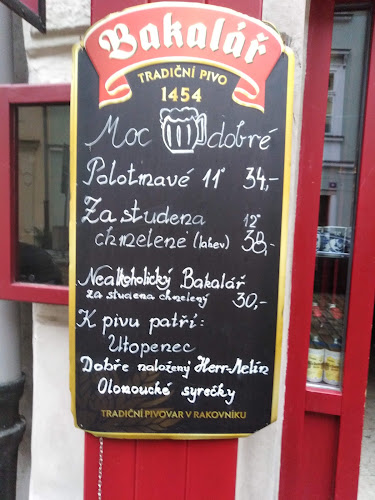 Bakalář
TRADIČNÍ PIVO
1454
Moc dobré
Polotmavé 11° 34,-
Za studena 12°
chmelené (lahev) 38,-
Nealkoholický Bakalář
za studena chmelený 30,-
K pivu patří:
Utopenec
Dobře naložený Herr-Melín
Olomoucké syrečky
TRADIČNÍ PIVOVAR V RAKOVNÍKU